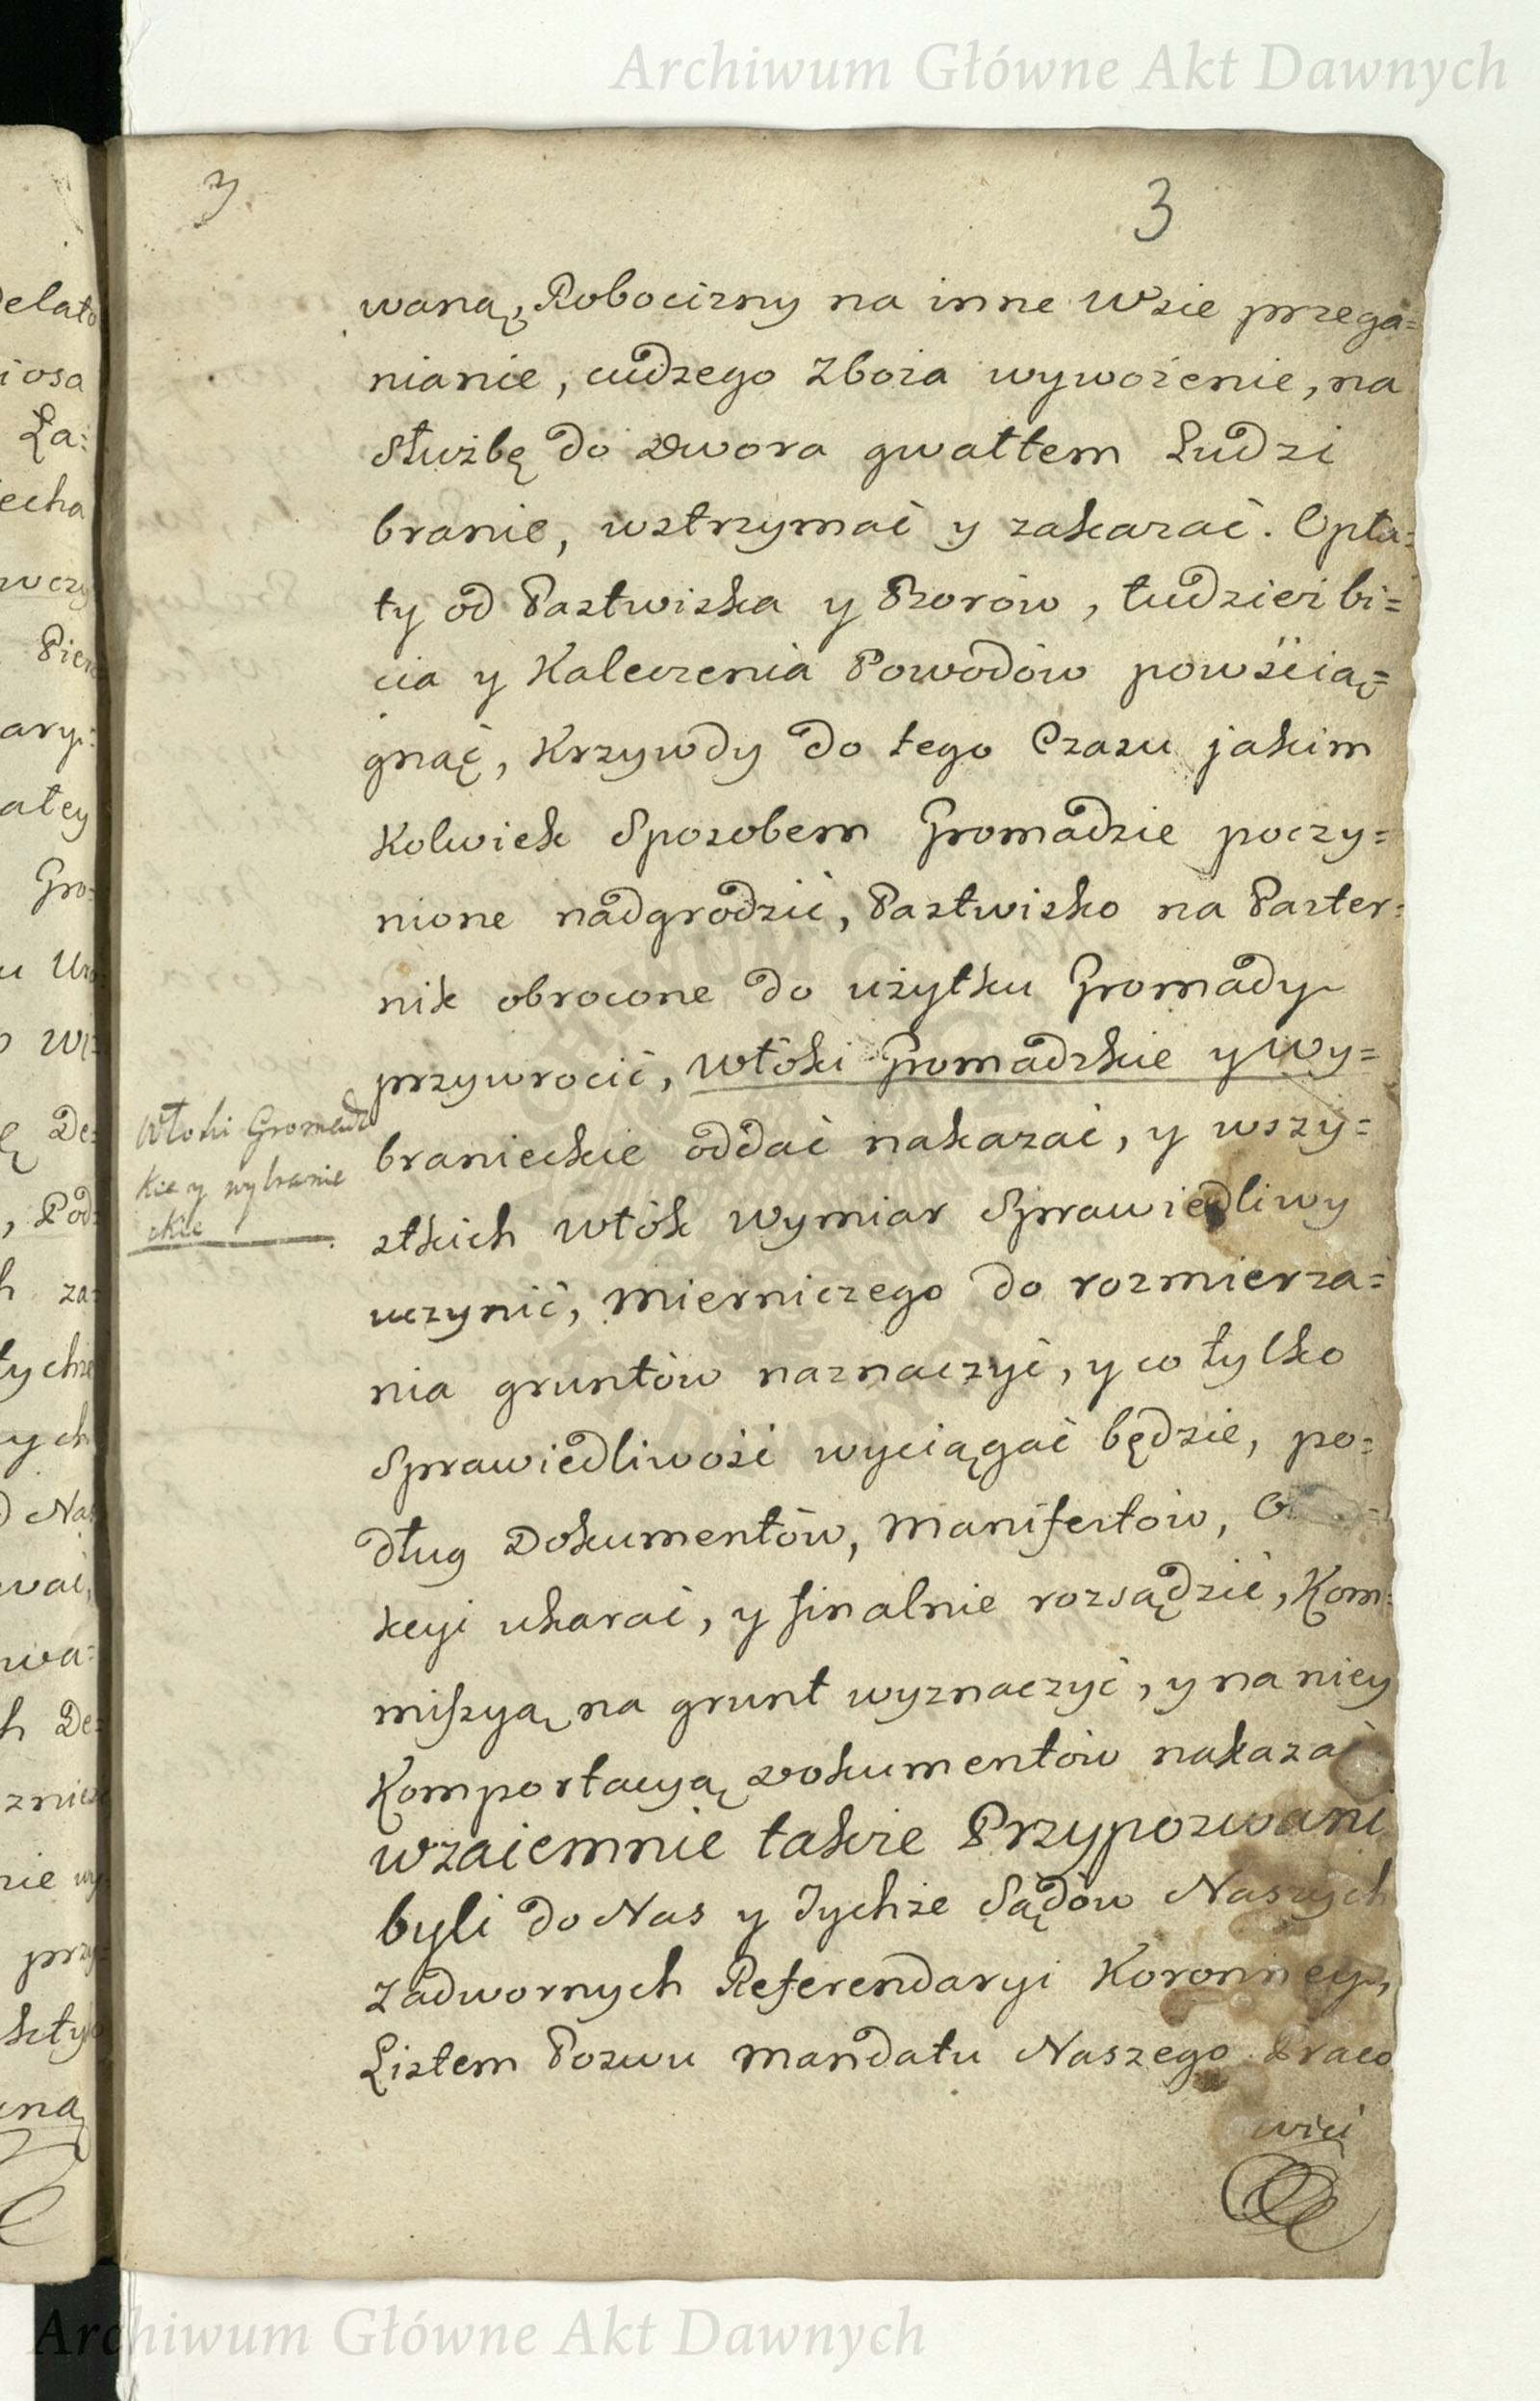 Archiwum Główne Akt Dawnych
3
3
waną, Robocizny na inne Wsie przega=
nianie, cudzego Zboża wywożenie, na
Służbę do Dwora gwałtem Ludzi
branie, wstrzymać y zakazać. Opła=
ty od Pastwiska y Borów, tudzież bi=
cia y Kaleczenia Powodów powścią=
gnąć, Krzywdy do tego Czasu jakim
Kolwiek Sposobem Gromadzie poczy=
nione nadgrodzić, Pastwisko na Paster=
nik obrocone do użytku Gromady
przywrocić, włóki Gromadzkie y Wy=
branieckie oddać nakazać, y wszy=
stkich włók wymiar Sprawiedliwy
uczynić, Mierniczego do rozmierza=
nia gruntów naznaczyć, y co tylko
Sprawiedliwość wyciągać będzie, po=
dług Dokumentów, Manifestów,
kcyi ukarać, y finalnie rozsądzić, Kom=
missyą na grunt wyznaczyć, y na niey
Komportacyą Dokumentów nakazać
wzaiemnie także Przypozwani
byli do Nas y Tychże Sądów Naszych
Zadwornych Referendaryi Koronney,
Listem Pozwu Mandatu Naszego Praco
wici
Włoki Gromadz
kie y wybranie
ckie
elato
iosa
Ła=
echa
wczy
Pier
ary=
ałey
Gro=
u Ur
o Wi=
ę De=
, Pod=
h za=
tychże
ych
Nas
wać,
wa=
h De=
znies
nie wy
przy=
kty
ną
Archiwum Główne Akt Dawnych